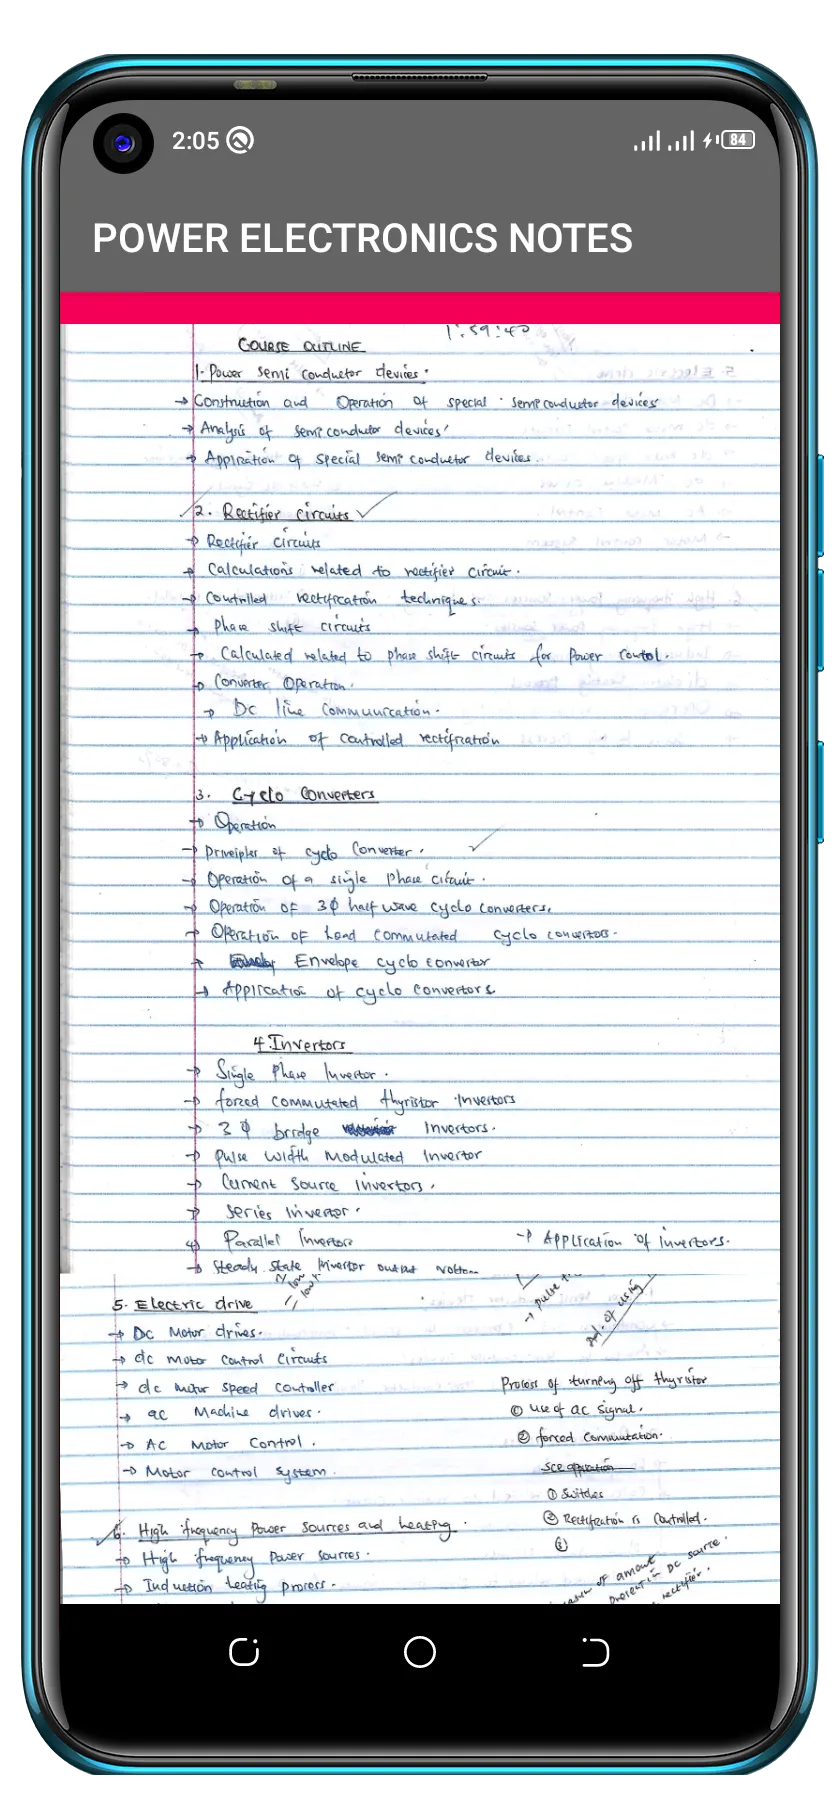 2:05
84
POWER ELECTRONICS NOTES
1:59:40
COURSE OUTLINE
1. Power semi conductor devices.
→ Construction and Operation of special semiconductor devices
→ Analysis of semiconductor devices
→ Application of special semi conductor devices.
2. Rectifier circuits
→ Rectifier circuits
→ Calculations related to rectifier circuit.
→ Controlled rectification techniques.
→ phase shift circuits
→ Calculated related to phase shift circuits for power control.
→ Converter Operation.
→ Dc line communication.
→ Application of controlled rectification
3. Cyclo Converters
→ Operation
→ Principles of cyclo Converter.
→ Operation of a single phase circuit.
→ Operation of 3φ half wave cyclo converters.
→ Operation of Load commutated cyclo convertors.
→ Envelope cyclo convertor
→ Application of cyclo convertors
4. Invertors
→ Single phase Invertor.
→ forced commutated thyristor invertors
→ 3 φ bridge Invertors.
→ pulse width Modulated Invertor
→ Current source invertors.
→ Series invertor.
→ Parallel Invertors
→ Application of invertors.
→ Steady state Invertor output
→ pulse
of using
5. Electric drive
→ Dc Motor drives.
→ dc motor control circuits
→ dc motor speed controller
→ ac Machine drives.
→ AC Motor Control.
→ Motor control system.
Process of turning off thyristor
① use of ac signal.
② forced commutation.
SCR application
① Switches
② Rectification is controlled.
③
6. High frequency power sources and heating.
→ High frequency power sources.
→ Induction heating process.
of amount
present in DC source.
rectifier.